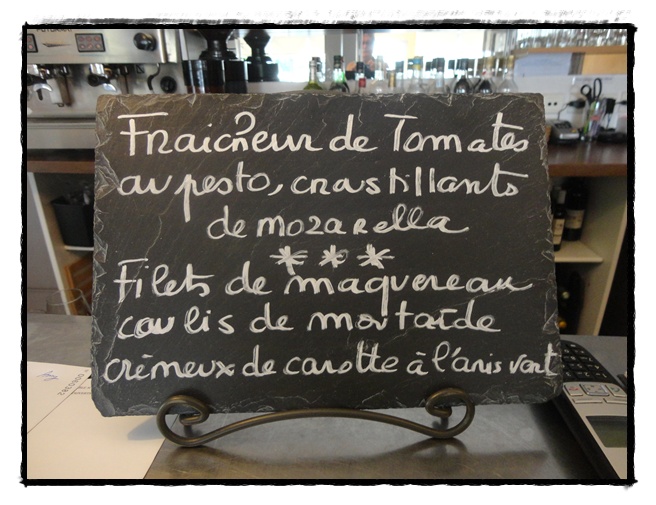 Fraicheur de Tomates
au pesto, croustillants
de mozarella
***
Filets de maquereau
coulis de moutarde
crèmeux de carotte à l'anis vert